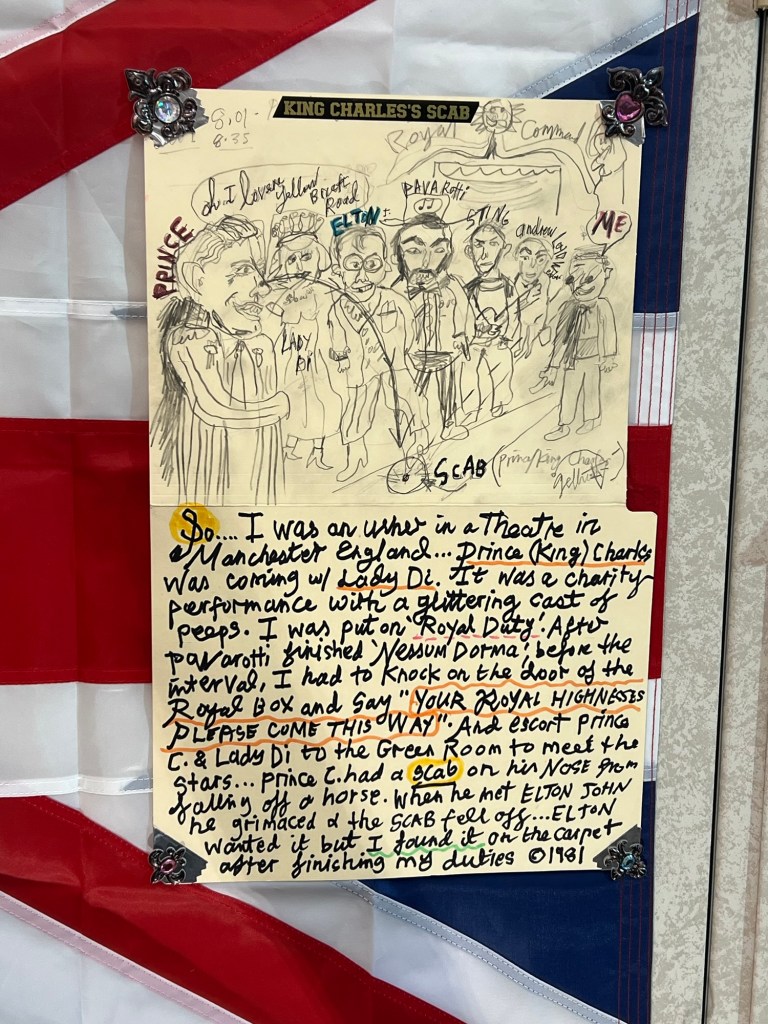 KING CHARLES'S SCAB
8.01-
8.35
Royal Command
oh I love
yellow
Brick
Road
PRINCE
LADY
DI
ELTON
PAVAROTTI
STING
andrew
ME
SCAB (prince/king
So.... I was an usher in a Theatre in
Manchester England... Prince (King) Charles
was coming w/ Lady Di. It was a charity
performance with a glittering cast of
peeps. I was put on 'Royal Duty'. After
pavarotti finished 'Nessum Dorma', before the
interval, I had to knock on the door of the
Royal Box and say "YOUR ROYAL HIGHNESSES
PLEASE COME THIS WAY". And escort prince
C. & Lady Di to the Green Room to meet the
stars... prince C. had a scab on his NOSE from
falling off a horse. When he met ELTON JOHN
he grimaced & the SCAB fell off... ELTON
wanted it but I found it on the carpet
after finishing my duties ©1981